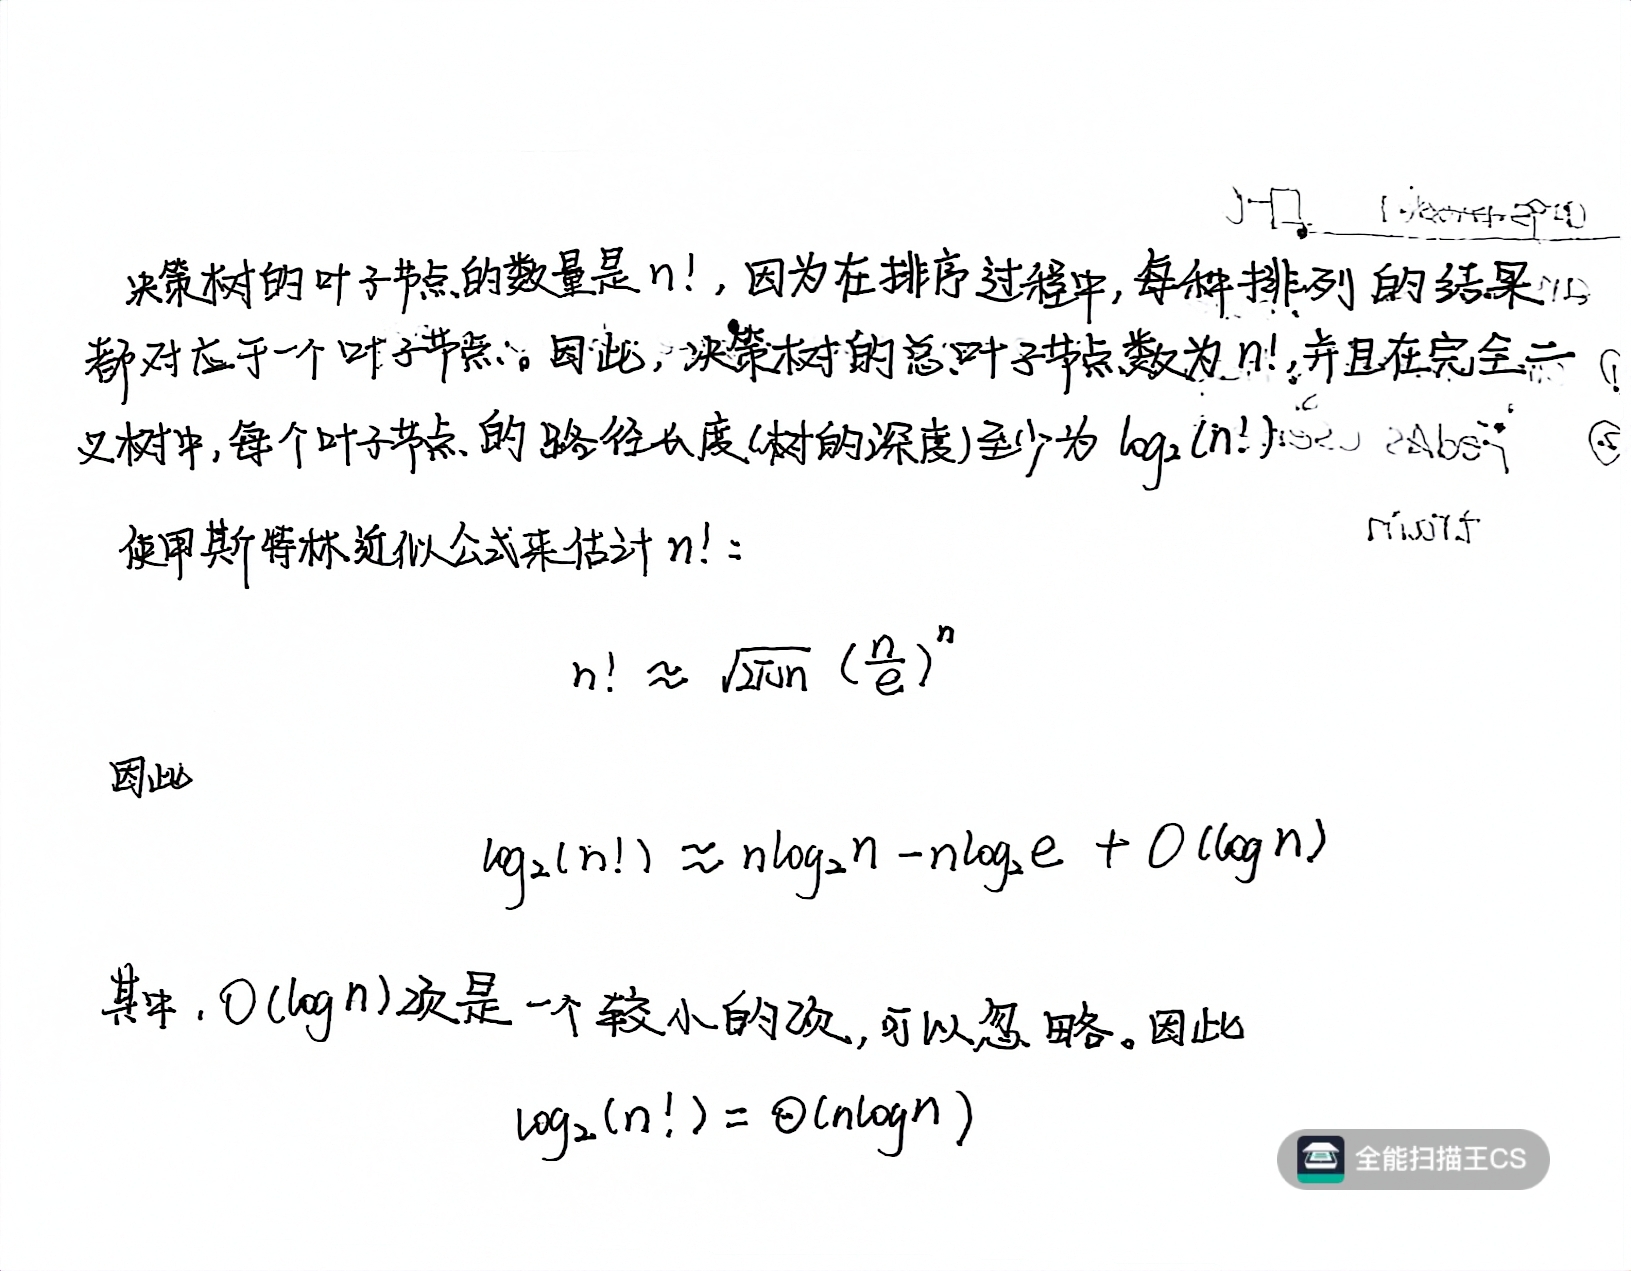 决策树的叶子节点的数量是n!,因为在排序过程中,每种排列的结果
都对应于一个叶子节点。因此,决策树的总叶子节点数为n!,并且在完全二
叉树中,每个叶子节点的路径长度(树的深度)至少为log₂(n!)
使用斯特林近似公式来估计n!:
n! ≈ √2πn (n/e)ⁿ
因此
log₂(n!) ≈ nlog₂n - nlog₂e + O(logn)
其中,O(logn)项是一个较小的项,可以忽略。因此
log₂(n!) = Θ(nlogn)
全能扫描王CS